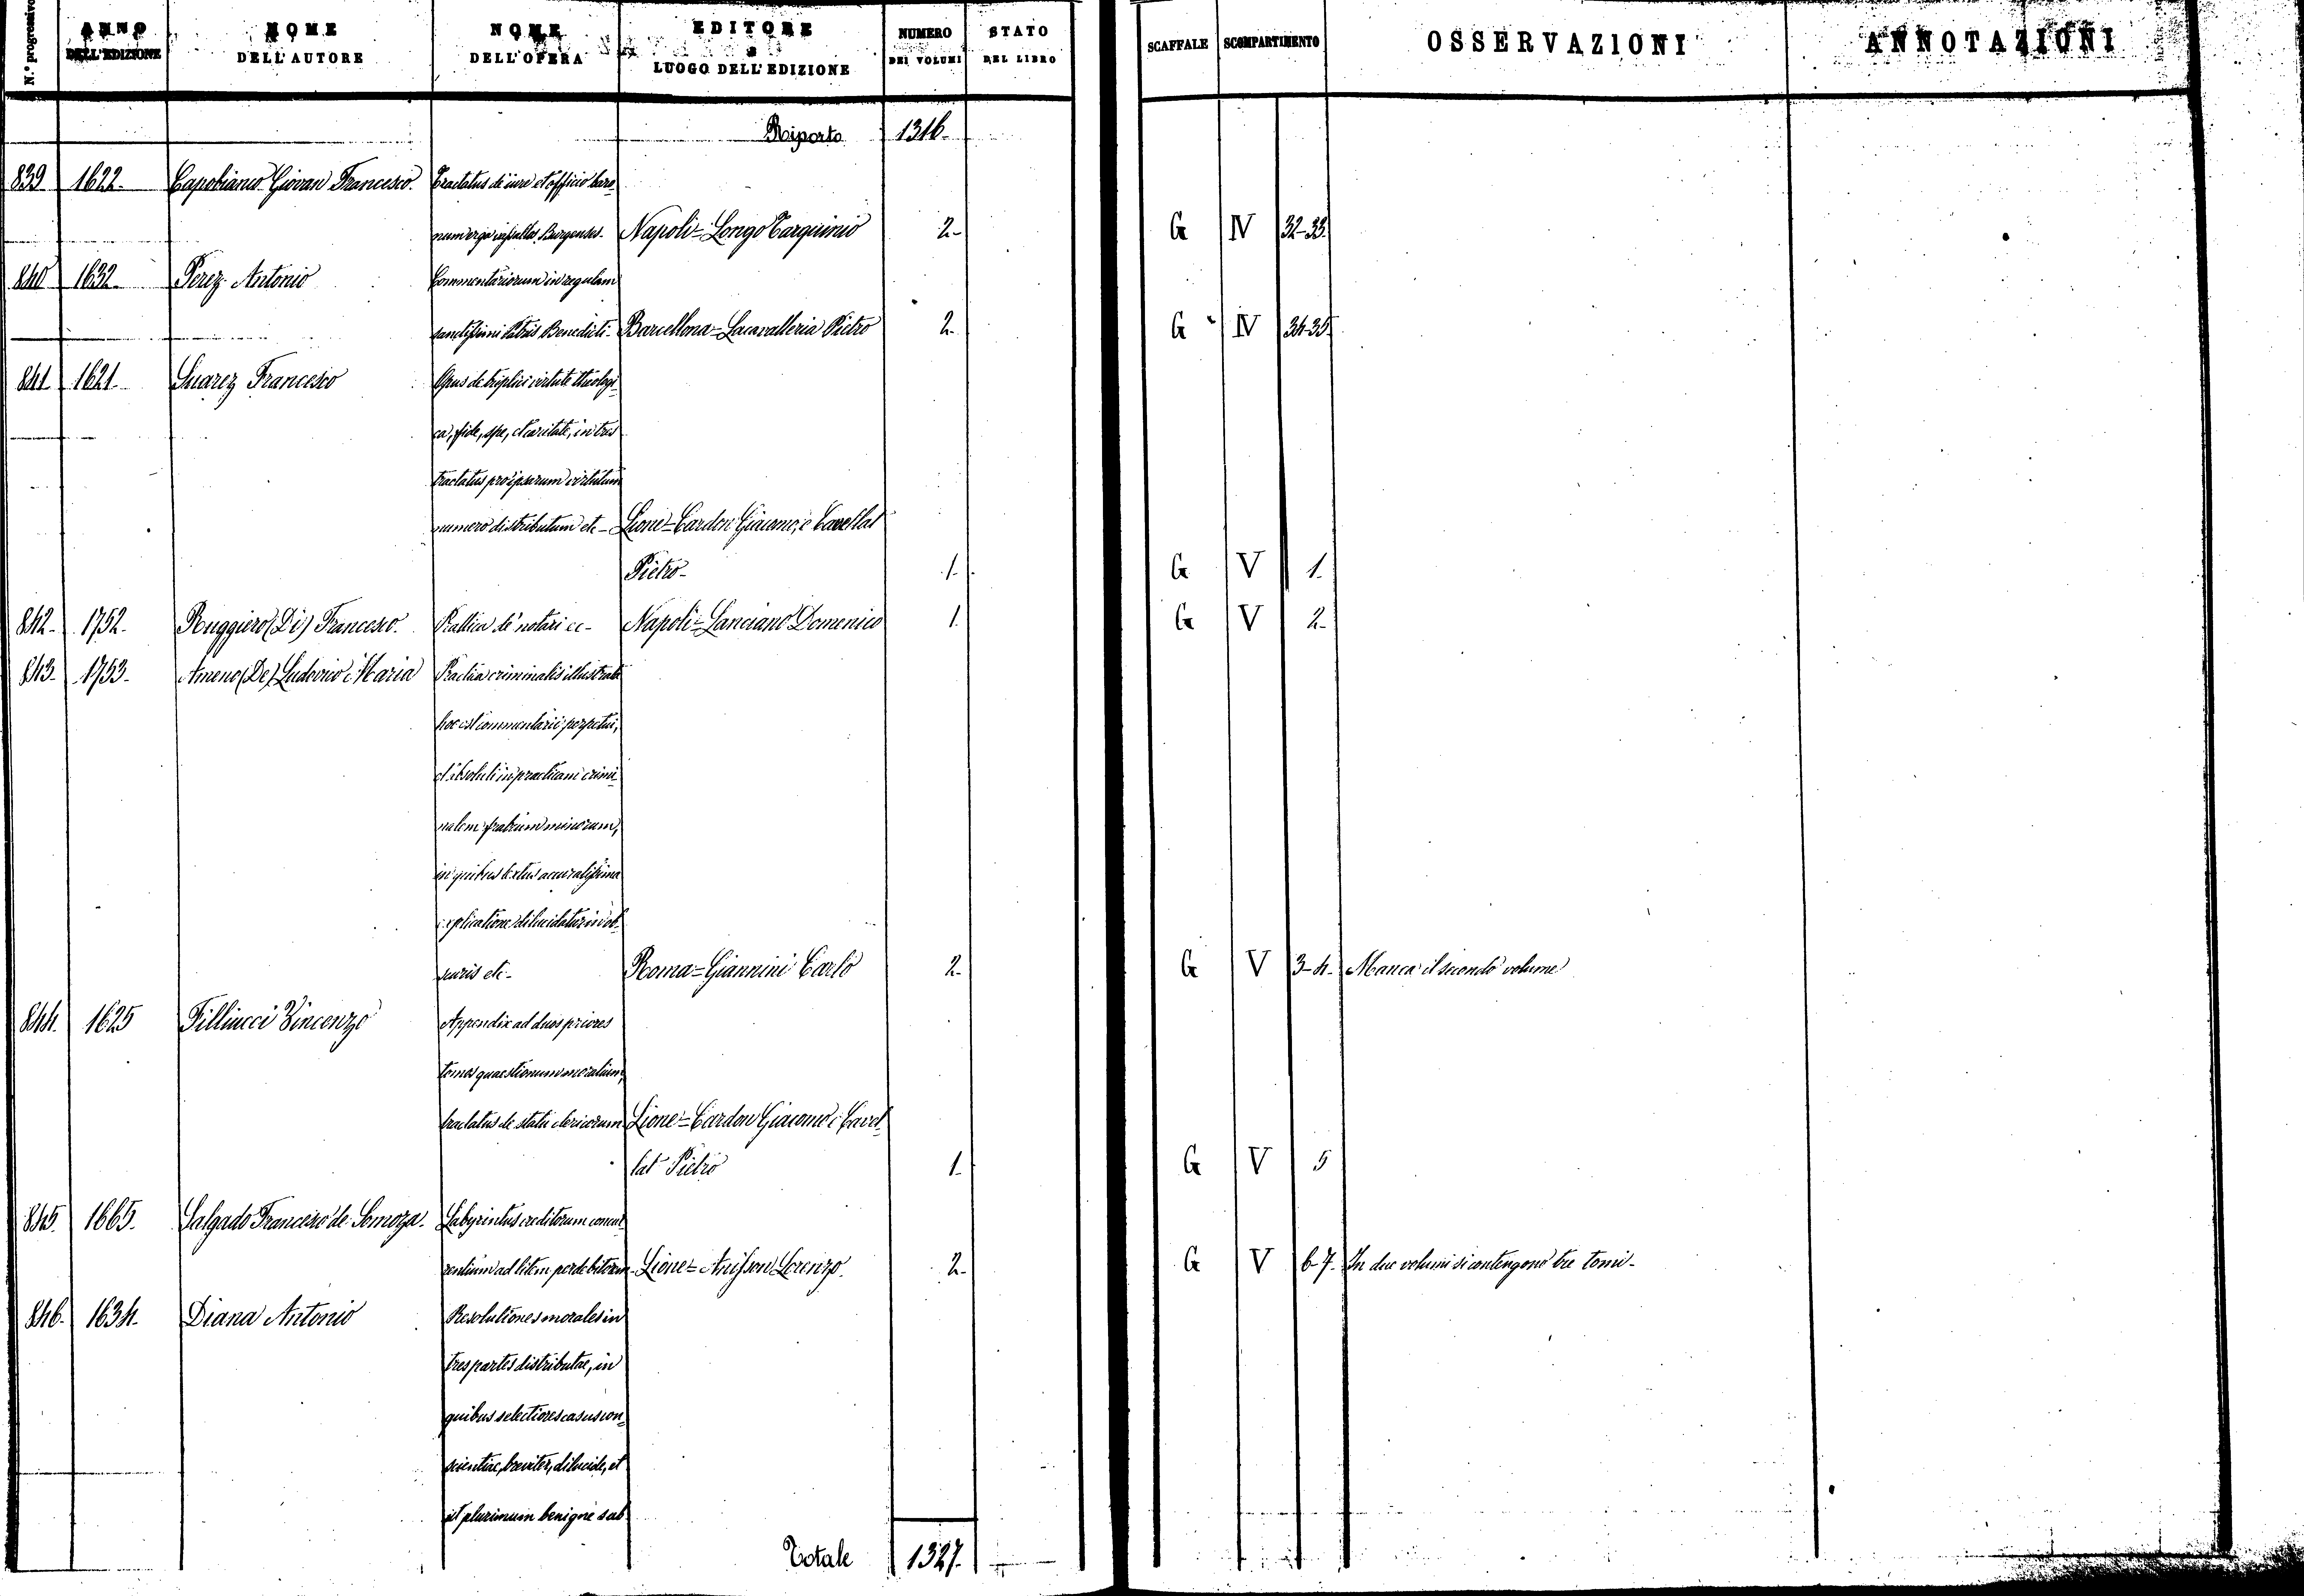 N.° progressivo
ANNO DELL'EDIZIONE
NOME DELL'AUTORE
NOME DELL'OPERA
EDITORE e LUOGO DELL'EDIZIONE
NUMERO DEI VOLUMI
STATO DEL LIBRO
SCAFFALE
SCOMPARTIMENTO
OSSERVAZIONI
ANNOTAZIONI
Riporto 1316.
839 1622. Capobianco Giovan Francesco. Tractatus de iure et officio baro-
num erga vasallos Burgenses. Napoli = Longo Tarquinio 2. G IV 32-33.
840 1632. Perez Antonio Commentariorum in regulam
sanctissimi Patris Benedicti. Barcellona = Lacavalleria Pietro 2. G IV 34-35.
841 1621. Suarez Francesco Opus de triplici virtute theologi-
ca, fide, spe, et caritate, in tres
tractatus pro ipsarum virtutum
numero distributum etc. Lione = Cardon Giacomo, e Cavellat
Pietro. 1. G V 1.
842. 1752. Ruggiero (Di) Francesco. Prattica de' notari ec. Napoli = Lanciano Domenico 1. G V 2.
843. 1753. Ameno (De) Ludovico Maria Practica criminalis illustrata
hoc est commentarii perpetui,
et absoluti in practicam crimi-
nalem fratrum minorum,
in quibus textus accuratissima
explicatione dilucidatur in ob-
scuris etc. Roma = Giannini Carlo 2. G V 3-4. Manca il secondo volume
844. 1625 Filliucci Vincenzo Appendix ad duos priores
tomos quaestionum moralium,
tractatus de statu clericorum Lione = Cardon Giacomo e Cavel-
lat Pietro 1. G V 5
845. 1665. Salgado Francesco de Somoza. Labyrintus creditorum concur-
rentium ad litem per debitorem. Lione = Anisson Lorenzo. 2. G V 6-7. In due volumi si contengono tre tomi.
846. 1634. Diana Antonio Resolutiones morales in
tres partes distributae, in
quibus selectiores casus con-
scientiae, breviter, dilucide, et
ut plurimum benigne sub
Totale 1327.